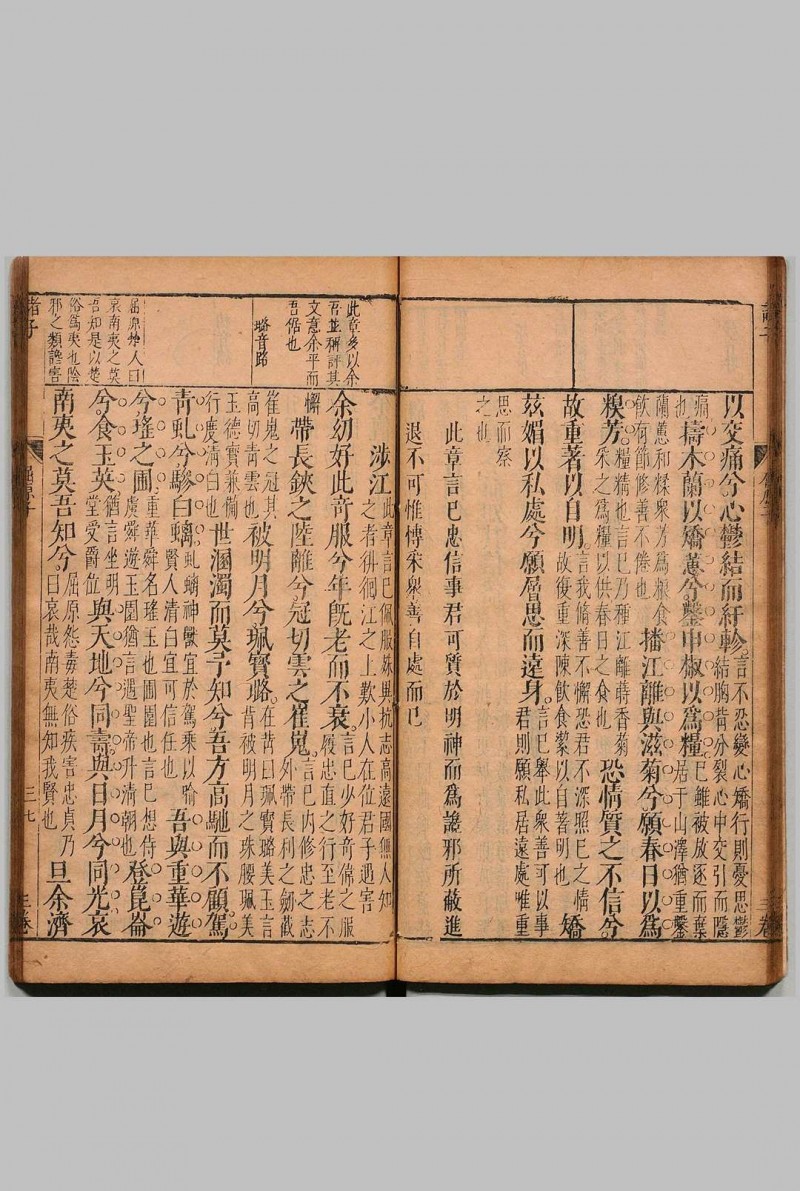 以交痛兮心鬱結而紆軫言不忍變心矯行則憂思鬱結胸背分裂心中交引而隱
痛也擣木蘭以矯蕙兮鑿申椒以爲糧言己雖被放逐而棄居于山澤猶重鑿
蘭蕙和糅衆芳爲糧食飲有節修善不倦也播江離與滋菊兮願春日以爲
糗芳糗糒也言己乃種江離蒔香菊采之爲糧以供春日之食也恐情質之不信兮
故重著以自明言我修善不懈恐君不深照己之情故復重深陳飲食潔以自著明也矯
茲媚以私處兮願曾思而遠身言己舉此衆善可以事君則願私居遠處唯重
思而察之也
此章言己忠信事君可質於明神而爲讒邪所蔽進
退不可惟博采衆善自處而已
此章多以余
吾並稱詳其
文意余平而
吾倨也
璐音路
屈原怨人曰
哀南夷之莫
吾知是以楚
俗爲夷也陰
邪之類讒害
涉江此章言己佩服殊異抗志高遠國無人知之者徘徊江之上歎小人在位君子遇害
余幼好此奇服兮年旣老而不衰言己少好奇偉之服履忠直之行至老不
懈帶長鋏之陸離兮冠切雲之崔嵬言己內修忠之志外帶長利之劍戴
崔嵬之冠其高切青雲也被明月兮珮寶璐在背曰珮寶璐美玉言背被明月之珠腰珮美
玉德寶兼備行度清白也世溷濁而莫予知兮吾方高馳而不顧駕
青虬兮驂白螭虬螭神獸宜於駕乘以喻賢人清白宜可信任也吾與重華遊
兮瑤之圃重華舜名瑤玉也圃園也言己想侍虞舜遊玉園猶言遇聖帝升清朝也登崑崙
兮食玉英猶言坐明堂受爵位與天地兮同壽與日月兮同光哀
南夷之莫吾知兮屈原怨毒楚俗疾害忠貞乃曰哀哉南夷無知我賢也旦余濟
諸子
屈原子
三七
三卷